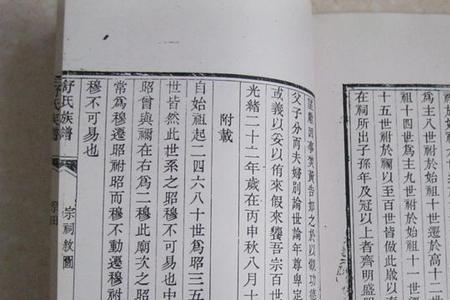 為主八世祔於始祖十世遷於高十二
祖十四世為主九世祔於始祖十一世
十五世祔於始祖以至百世皆倣此歲以
在祠所出子孫年及冠以上者齊明盛
因事焚黃告
父子分而夫婦別論世論年尊卑定
或義以安以侑來假來饗吾宗百世
光緒二十二年歲在丙申秋八月十
附載
自始祖起二四六八十世為昭三五
世皆然此世系之昭穆也中
昭曾與禰在右為二穆此廟次之昭
常為穆遷昭祔昭而穆不動遷穆祔
穆不可易也
舒氏族譜
宗祠圖